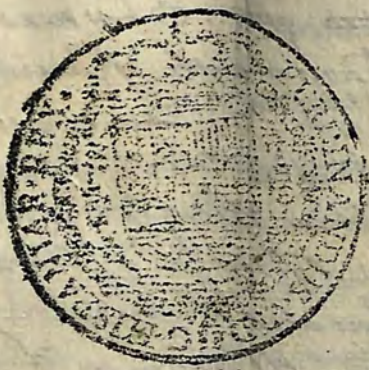 FERDINANDUS D·G·HISPANIAR·REX·